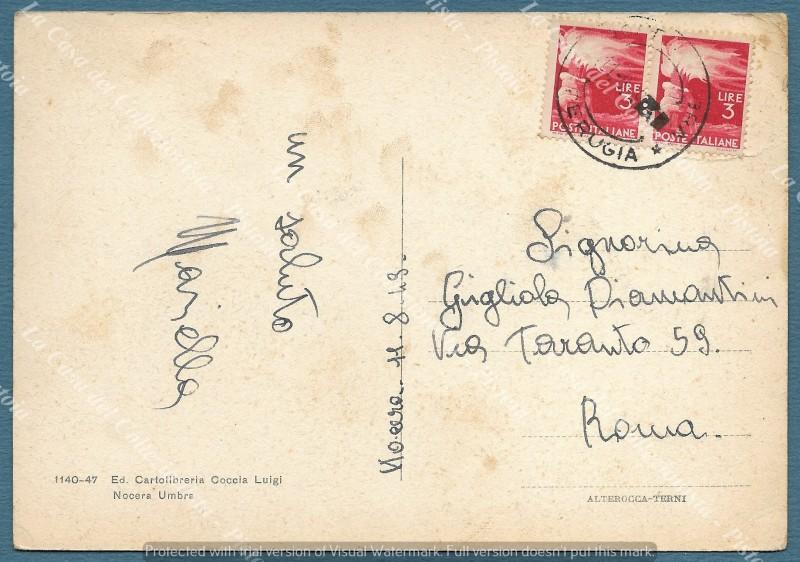 LIRE
3
POSTE ITALIANE
LIRE
3
POSTE ITALIANE
PERUGIA *
un saluto
Marella
Nocera 11.8.48.
Signorina
Gigliola Diamantini
Via Taranto 59.
Roma.
1140-47 Ed. Cartolibreria Coccia Luigi
Nocera Umbra
ALTEROCCA-TERNI
La Casa del Collezionista - Pistoia
Protected with trial version of Visual Watermark. Full version doesn't put this mark.